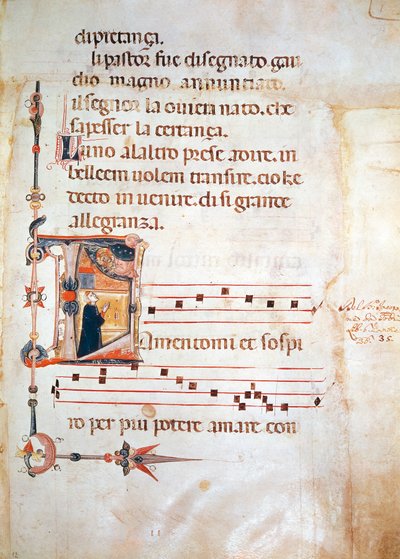 di pietança.
li pastor fue disegnato gau
dio magno annunciato.
il segnor la ouiera nato. che
sapesser la certança.
Luno alaltro prese adire. in
belleem uolem transire. cio ke
decto in uenire. di si grande
allegranza.
Lamentomi et sospi
35.
ro per piu potere amare con
11